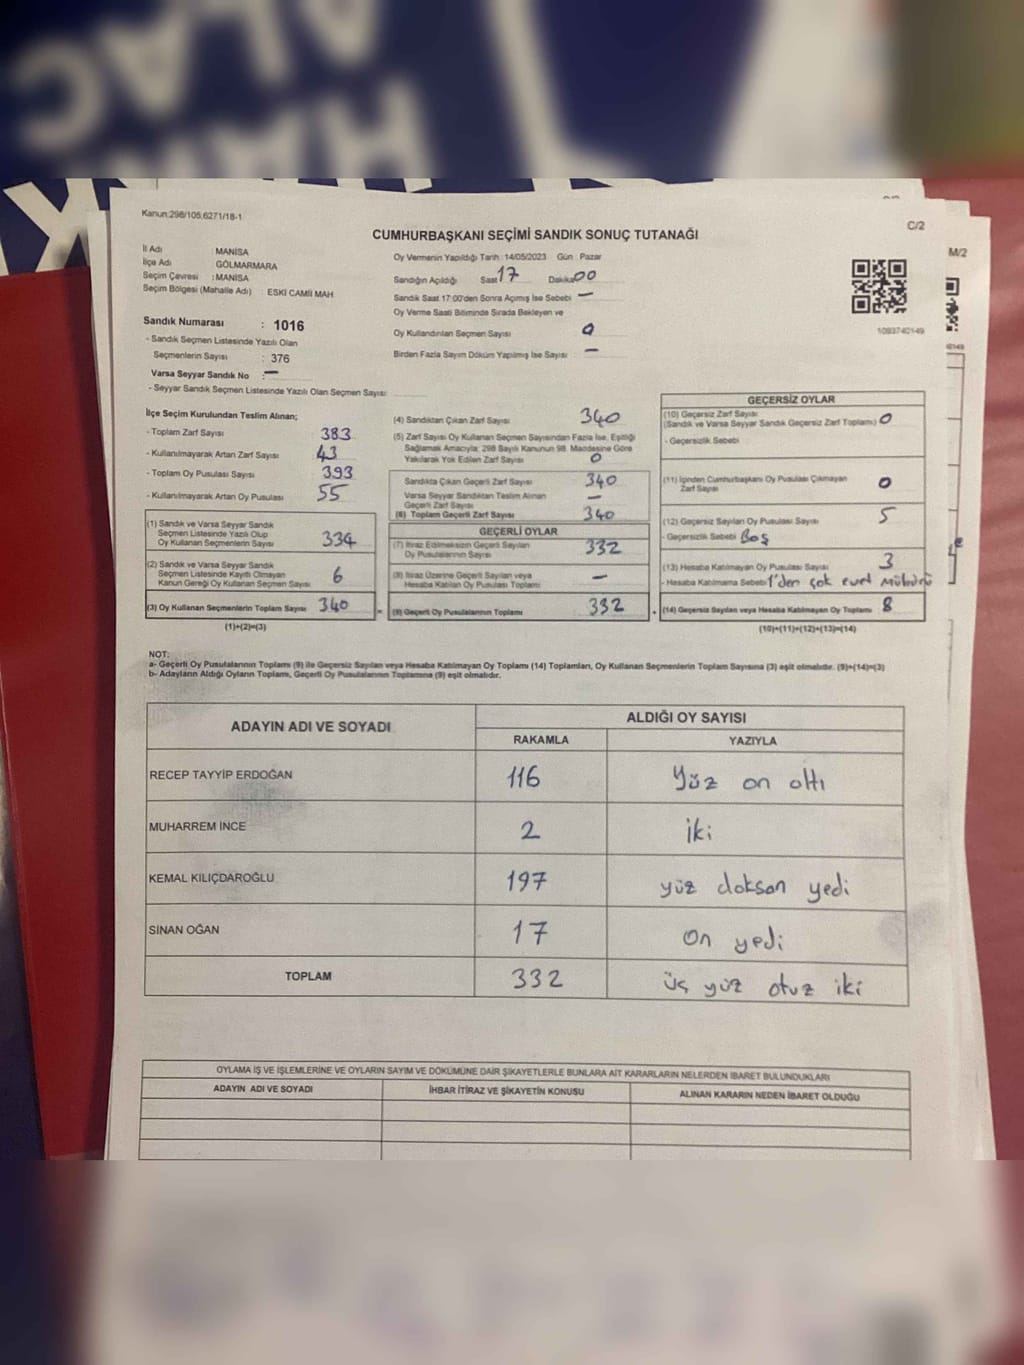 HAK
ALAC
Kanun:298/105,6271/18-1
C/2
M/2
CUMHURBAŞKANI SEÇİMİ SANDIK SONUÇ TUTANAĞI
İl Adı : MANİSA
İlçe Adı : GÖLMARMARA
Seçim Çevresi : MANİSA
Seçim Bölgesi (Mahalle Adı) : ESKİ CAMİİ MAH.
Oy Vermenin Yapıldığı Tarih: 14/05/2023 Gün : Pazar
Sandığın Açıldığı Saat 17 Dakika 00
Sandık Saat 17:00'den Sonra Açılmış İse Sebebi —
Oy Verme Saati Bitiminde Sırada Bekleyen ve
Oy Kullandırılan Seçmen Sayısı 0
Birden Fazla Sayım Döküm Yapılmış İse Sayısı —
1093740149
Sandık Numarası : 1016
- Sandık Seçmen Listesinde Yazılı Olan
Seçmenlerin Sayısı : 376
Varsa Seyyar Sandık No : —
- Seyyar Sandık Seçmen Listesinde Yazılı Olan Seçmen Sayısı:
İlçe Seçim Kurulundan Teslim Alınan;
- Toplam Zarf Sayısı 383
- Kullanılmayarak Artan Zarf Sayısı 43
- Toplam Oy Pusulası Sayısı 393
- Kullanılmayarak Artan Oy Pusulası 55
(1) Sandık ve Varsa Seyyar Sandık
Seçmen Listesinde Yazılı Olup
Oy Kullanan Seçmenlerin Sayısı 334
(2) Sandık ve Varsa Seyyar Sandık
Seçmen Listesinde Kayıtlı Olmayan
Kanun Gereği Oy Kullanan Seçmen Sayısı 6
(3) Oy Kullanan Seçmenlerin Toplam Sayısı 340
(1)+(2)=(3)
(4) Sandıktan Çıkan Zarf Sayısı 340
(5) Zarf Sayısı Oy Kullanan Seçmen Sayısından Fazla İse, Eşitliği
Sağlamak Amacıyla; 298 Sayılı Kanunun 98. Maddesine Göre
Yakılarak Yok Edilen Zarf Sayısı 0
Sandıkta Çıkan Geçerli Zarf Sayısı 340
Varsa Seyyar Sandıktan Teslim Alınan
Geçerli Zarf Sayısı —
(6) Toplam Geçerli Zarf Sayısı 340
GEÇERLİ OYLAR
(7) İtiraz Edilmeksizin Geçerli Sayılan
Oy Pusulalarının Sayısı 332
(8) İtiraz Üzerine Geçerli Sayılan veya
Hesaba Katılan Oy Pusulası Toplamı —
= (9) Geçerli Oy Pusulalarının Toplamı 332
GEÇERSİZ OYLAR
(10) Geçersiz Zarf Sayısı
(Sandık ve Varsa Seyyar Sandık Geçersiz Zarf Toplamı) 0
- Geçersizlik Sebebi
(11) İçinden Cumhurbaşkanı Oy Pusulası Çıkmayan
Zarf Sayısı 0
(12) Geçersiz Sayılan Oy Pusulası Sayısı 5
- Geçersizlik Sebebi Boş
(13) Hesaba Katılmayan Oy Pusulası Sayısı 3
- Hesaba Katılmama Sebebi 1'den çok evet mühürü
+ (14) Geçersiz Sayılan veya Hesaba Katılmayan Oy Toplamı 8
(10)+(11)+(12)+(13)=(14)
NOT:
a- Geçerli Oy Pusulalarının Toplamı (9) ile Geçersiz Sayılan veya Hesaba Katılmayan Oy Toplamı (14) Toplamları, Oy Kullanan Seçmenlerin Toplam Sayısına (3) eşit olmalıdır. (9)+(14)=(3)
b- Adayların Aldığı Oyların Toplamı, Geçerli Oy Pusulalarının Toplamına (9) eşit olmalıdır.
ADAYIN ADI VE SOYADI
ALDIĞI OY SAYISI
RAKAMLA YAZIYLA
RECEP TAYYİP ERDOĞAN 116 Yüz on altı
MUHARREM İNCE 2 iki
KEMAL KILIÇDAROĞLU 197 yüz doksan yedi
SİNAN OĞAN 17 on yedi
TOPLAM 332 üç yüz otuz iki
OYLAMA İŞ VE İŞLEMLERİNE VE OYLARIN SAYIM VE DÖKÜMÜNE DAİR ŞİKAYETLERLE BUNLARA AİT KARARLARIN NELERDEN İBARET BULUNDUKLARI
ADAYIN ADI VE SOYADI İHBAR İTİRAZ VE ŞİKAYETİN KONUSU ALINAN KARARIN NEDEN İBARET OLDUĞU